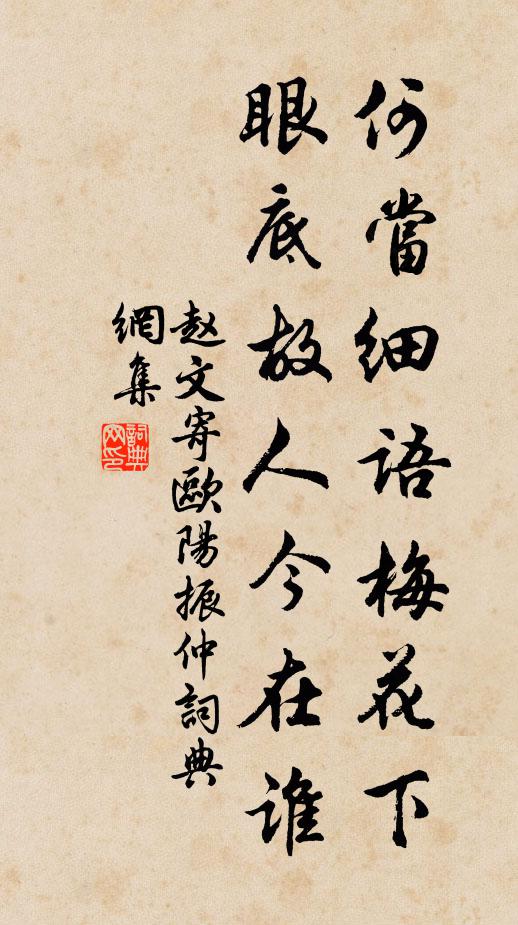 何當細語梅花下
眼底故人今在誰
赵文寄歐陽振仲詞典
網集
詞典
网印